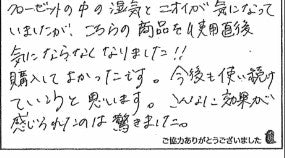 クローゼットの中の湿気とニオイが気になって
いましたが、こちらの商品を使用直後
気にならなくなりました!!
購入してよかったです。今後も使い続け
ていこうと思います。こんなに効果が
感じられたのは驚きました。
ご協力ありがとうございました